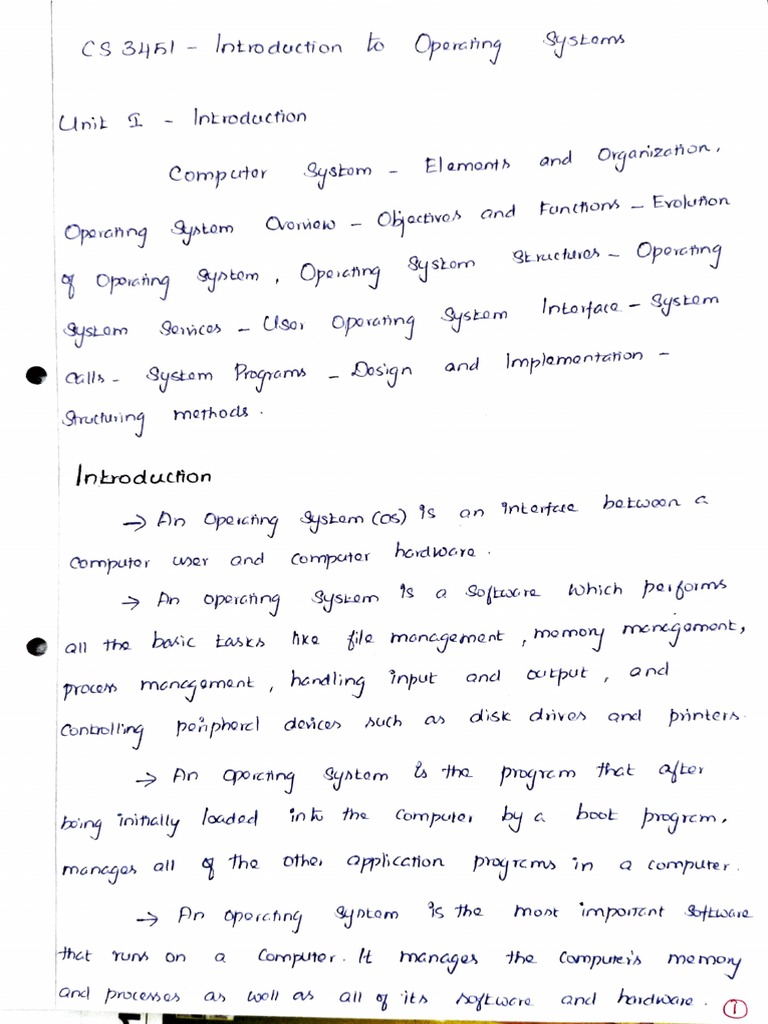 CS 3451 - Introduction to Operating Systems
Unit I - Introduction
Computer System - Elements and Organization,
Operating System Overview - Objectives and Functions - Evolution
of Operating System, Operating System Structures - Operating
System Services - User Operating System Interface - System
Calls - System Programs - Design and Implementation -
Structuring methods.
Introduction
→ An Operating System (OS) is an interface between a
computer user and computer hardware.
→ An operating System is a software which performs
all the basic tasks like file management, memory management,
process management, handling input and output, and
controlling peripheral devices such as disk drives and printers.
→ An operating System is the program that after
being initially loaded into the computer by a boot program,
manages all of the other application programs in a computer.
→ An operating System is the most important software
that runs on a computer. It manages the computer's memory
and processes as well as all of its software and hardware.
1